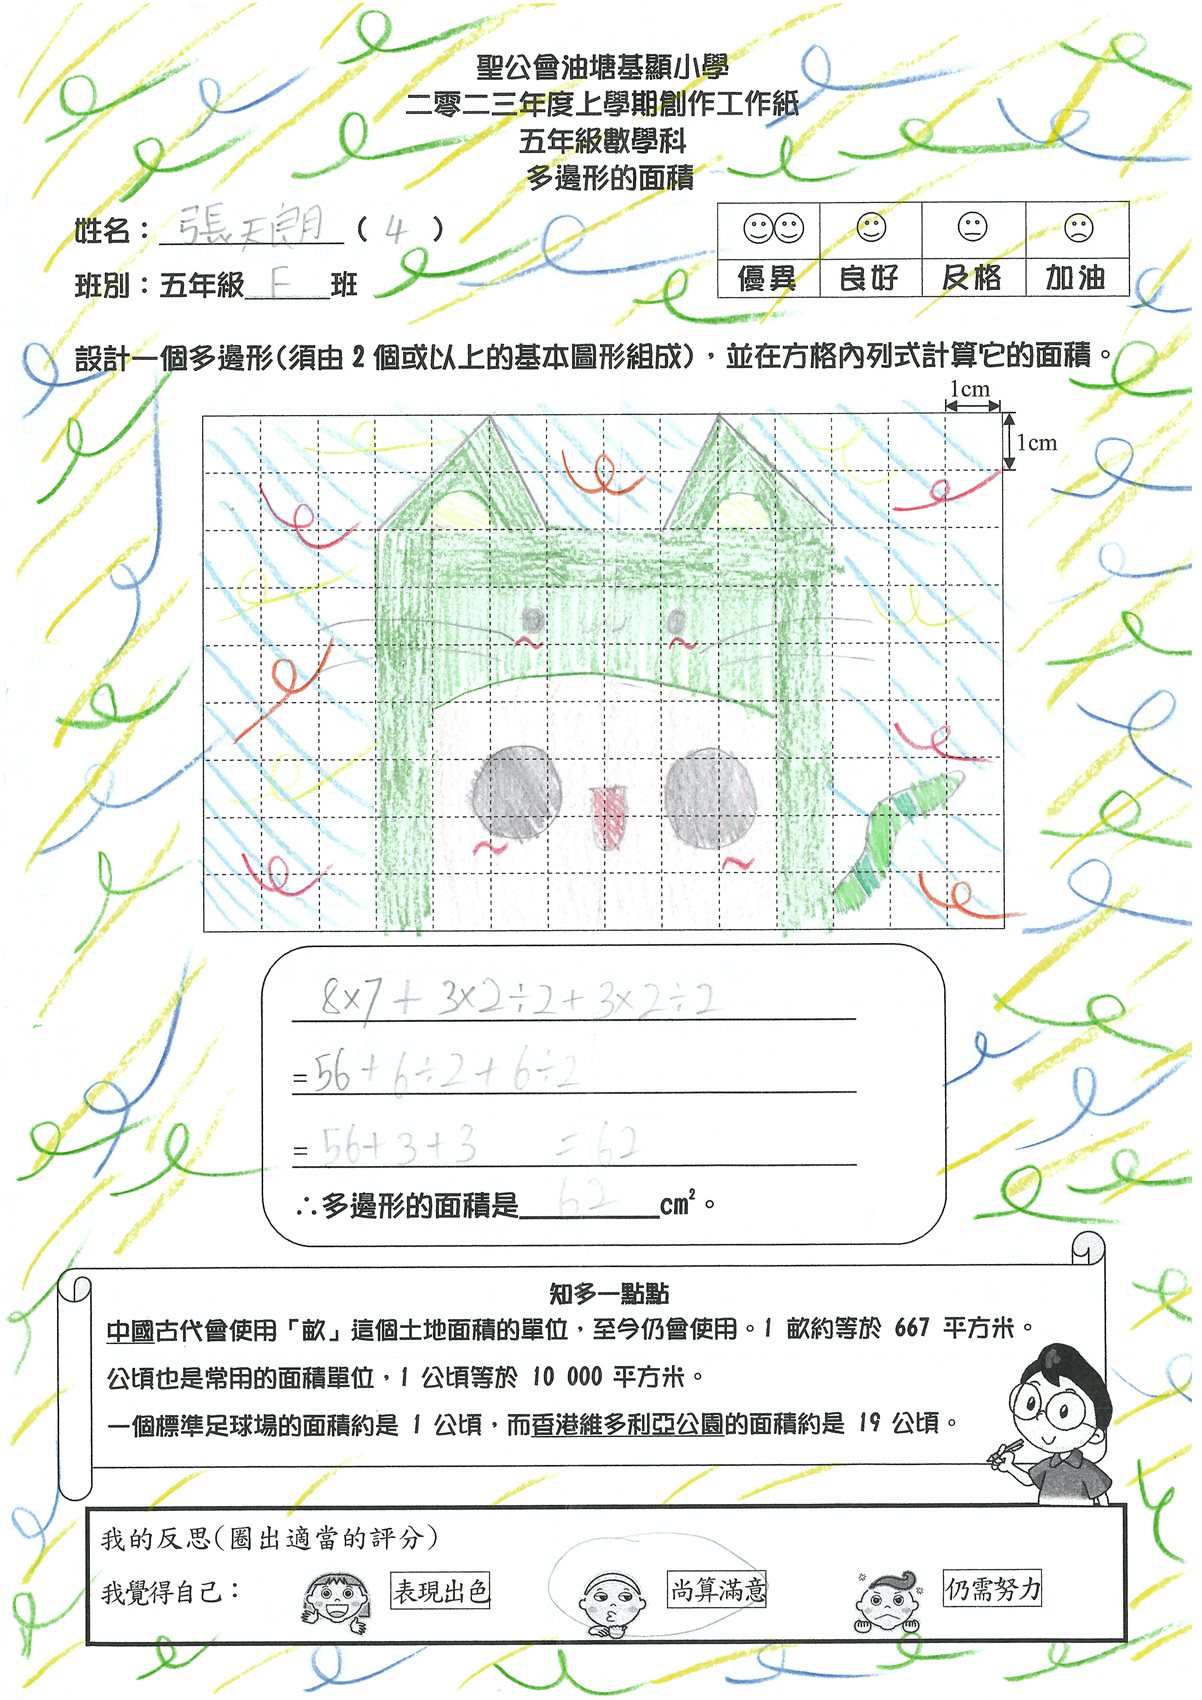 聖公會油塘基顯小學
二零二三年度上學期創作工作紙
五年級數學科
多邊形的面積
姓名：張天朗（ 4 ）
班別：五年級E班
優異 良好 及格 加油
設計一個多邊形(須由 2 個或以上的基本圖形組成)，並在方格內列式計算它的面積。
1cm
1cm
8×7 + 3×2÷2 + 3×2÷2
= 56 + 6÷2 + 6÷2
= 56 + 3 + 3 = 62
∴多邊形的面積是 62 cm²。
知多一點點
中國古代會使用「畝」這個土地面積的單位，至今仍會使用。1 畝約等於 667 平方米。
公頃也是常用的面積單位，1 公頃等於 10 000 平方米。
一個標準足球場的面積約是 1 公頃，而香港維多利亞公園的面積約是 19 公頃。
我的反思(圈出適當的評分)
我覺得自己： 表現出色 尚算滿意 仍需努力